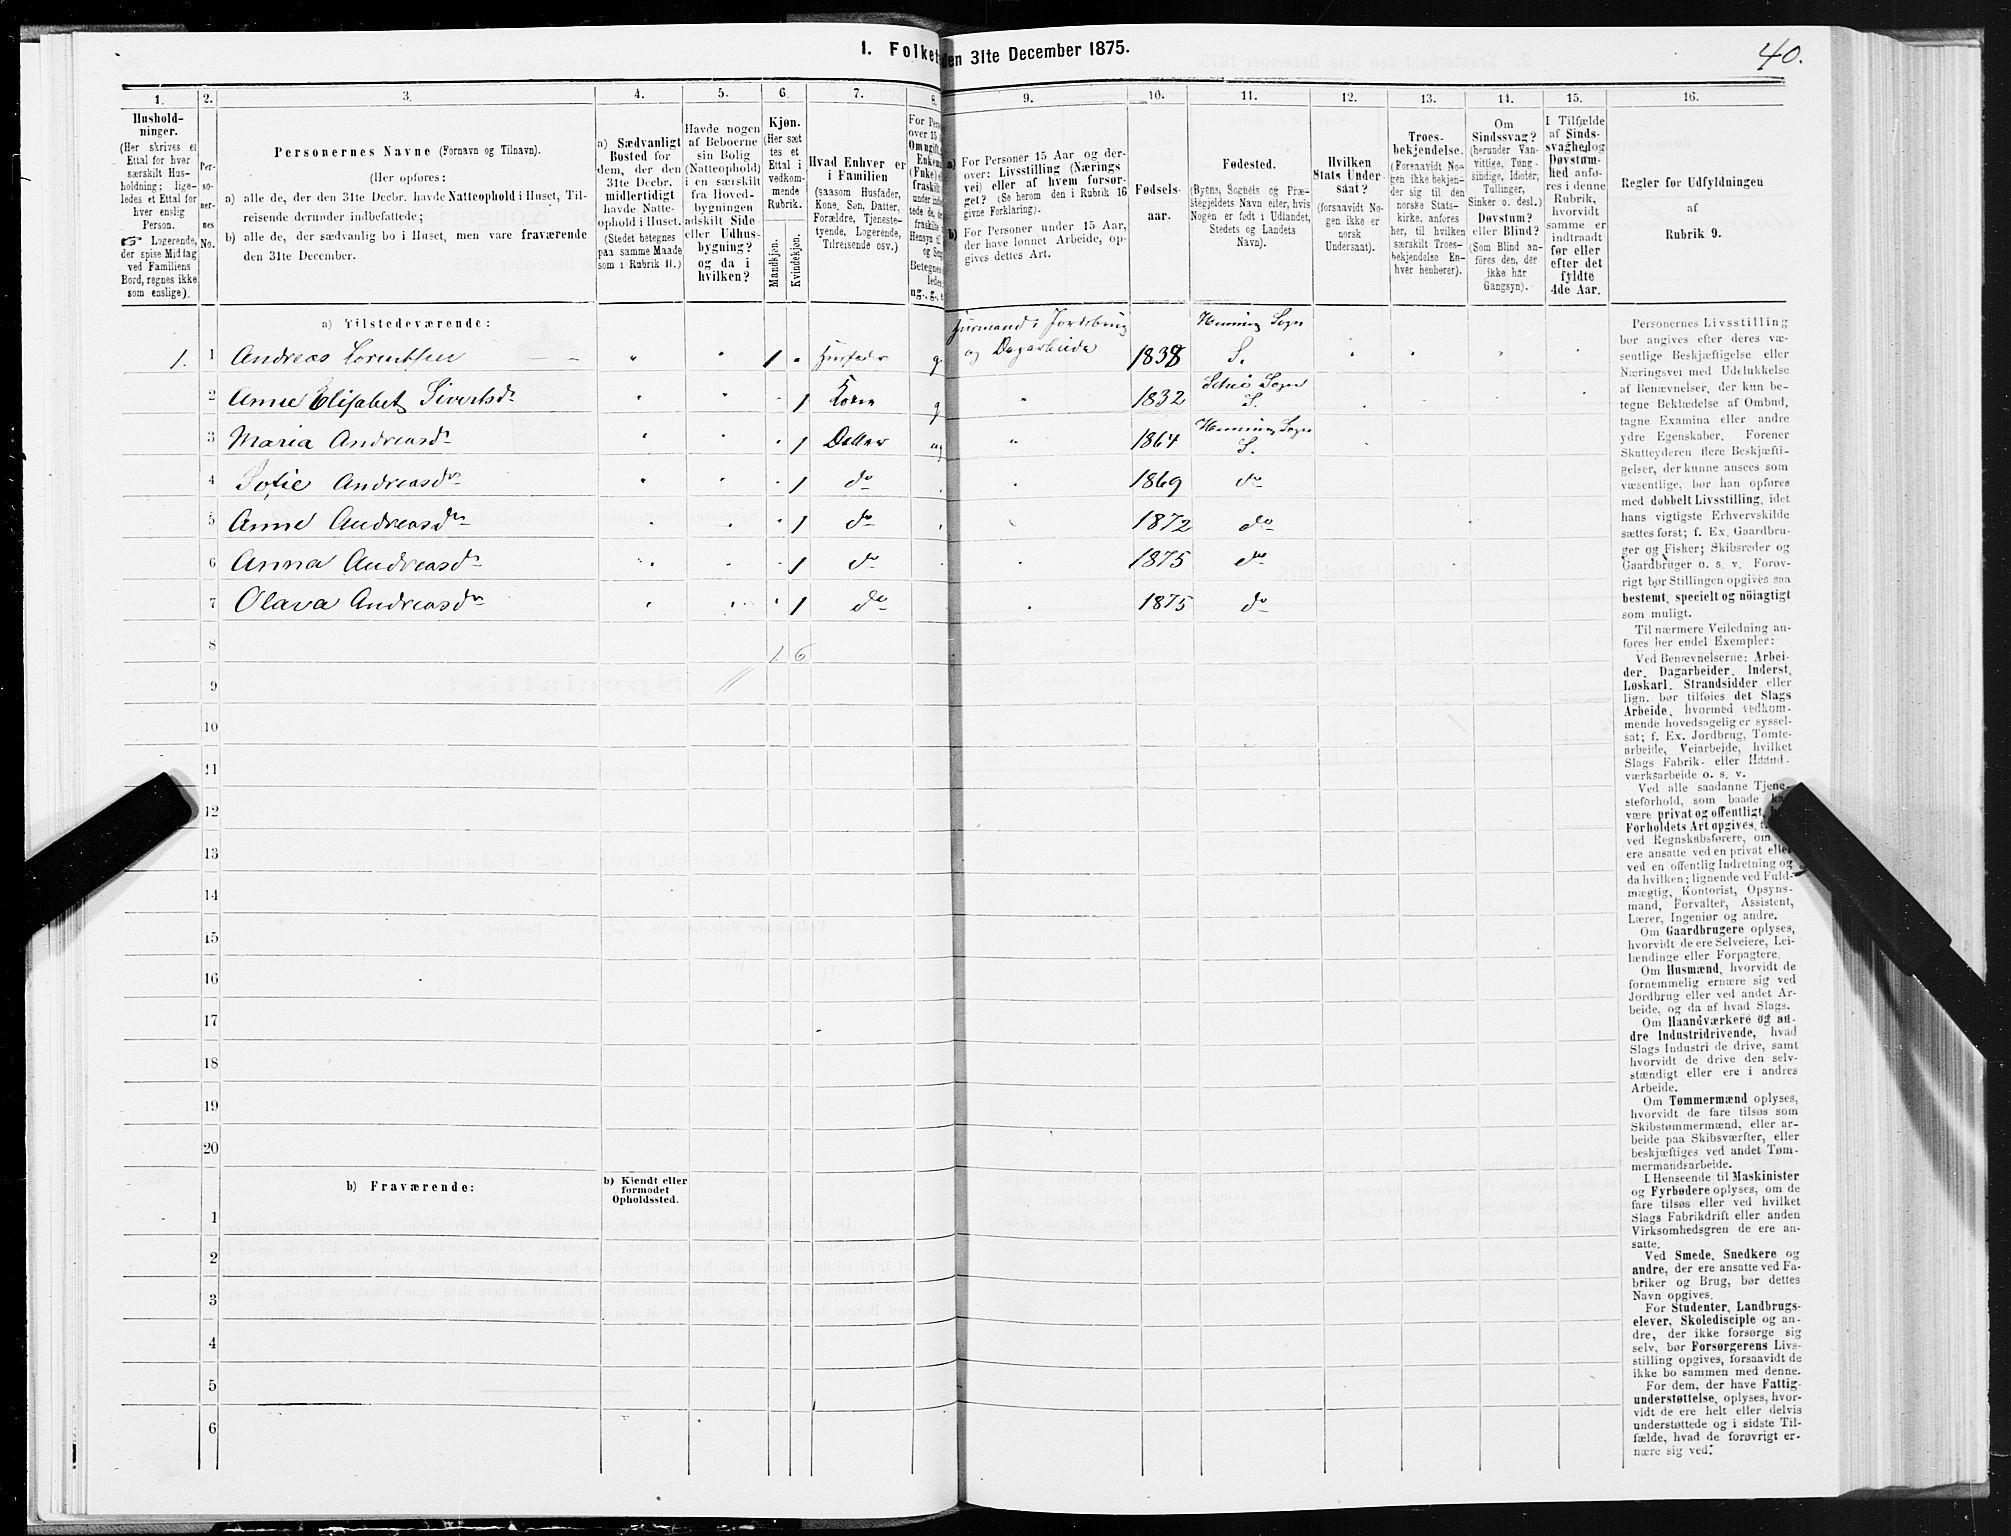 1. Folket den 31te December 1875.
40.
1. 2. 3. 4. 5. 6. 7. 8. 9. 10. 11. 12. 13. 14. 15. 16.
Hushold-
ninger.
(Her skrives et
Ettal for hver
særskilt Hus-
holdning; lige-
ledes et Ettal for
hver enslig
Person.
☞ Logerende,
der spise Middag
ved Familiens
Bord, regnes ikke
som enslige).
Per-
so-
ner-
nes
No.
Personernes Navne (Fornavn og Tilnavn).
(Her opføres:
a) alle de, der den 31te Decbr. havde Natteophold i Huset, Til-
reisende derunder indbefattede;
b) alle de, der sædvanlig bo i Huset, men vare fraværende
den 31te December.
a) Sædvanligt
Bosted for
dem, der den
31te Decbr.
midlertidigt
havde Natte-
ophold i Huset.
(Stedet betegnes
paa samme Maade
som i Rubrik 11.)
Havde nogen
af Beboerne
sin Bolig
(Natteophold)
i en særskilt
fra Hoved-
bygningen
adskilt Side-
eller Udhus-
bygning?
og da i
hvilken?
Kjøn.
(Her sæt-
tes et
Ettal i
vedkom-
mende
Rubrik.
Mandkjøn.
Kvindekjøn.
Hvad Enhver er
i Familien
(saasom Husfader,
Kone, Søn, Datter,
Forældre, Tjeneste-
tyende, Logerende,
Tilreisende osv.)
For Pers
over 15
Om ugift,
Enkem
(Fnke)
fraskilt
under indbe
tede de,
fraskilte
Hensyn
og Seng
Betegnes
ledes
ug., g.,
a) For Personer 15 Aar og der-
over: Livsstilling (Nærings-
vei) eller af hvem forsør-
get? (Se herom den i Rubrik 16
givne Forklaring).
b) For Personer under 15 Aar,
der have lønnet Arbeide, op-
gives dettes Art.
Fødsels-
aar.
Fødested.
(Byens, Sognets og Præ-
stegjeldets Navn eller, hvis
Nogen er født i Udlandet,
Stedets og Landets
Navn).
Hvilken
Stats Under-
saat?
(forsaavidt No-
gen ikke er
norsk
Undersaat).
Troes-
bekjendelse.
(Forsaavidt No-
gen ikke bekjen-
der sig til den
norske Stats-
kirke, anføres
her, til hvilken
særskilt Troes-
bekjendelse En-
hver henhører).
Om
Sindssvag?
(herunder Van-
vittige, Tung-
sindige, Idioter,
Tullinger,
Sinker o. desl.)
Døvstum?
eller Blind?
(Som Blind an-
føres den, der
ikke har
Gangsyn).
I Tilfælde
af Sinds-
svaghed og
Døvstum-
hed anfø-
res i denne
Rubrik,
hvorvidt
samme er
indtraadt
før eller
efter det
fyldte
4de Aar.
Regler for Udfyldningen
af
Rubrik 9.
a) Tilstedeværende:
1. 1 Andreas Lorentsen " " 1 " Husfader g. Husmand i Jordbrug og Dagarbeide 1838 Henning Sogn S.
2 Anne Elisabet Sivertsdr " " 1 Kone g " 1832 Sogn S.
3 Maria Andreasdr " " 1 Datter ug " 1864 Henning Sogn S.
4 Sofie Andreasdr " " 1 do " 1869 do
5 Anne Andreasdr " " 1 do " 1872 do
6 Anna Andreasdr " " 1 do " 1875 do
7 Olava Andreasdr " " 1 do " 1875 do
8 1 6
9
10
11
12
13
14
15
16
17
18
19
20
b) Fraværende:
b) Kjendt eller
formodet
Opholdssted.
1
2
3
4
5
6
Personernes Livsstilling
bør angives efter deres væ-
sentlige Beskjæftigelse eller
Næringsvei med Udelukkelse
af Benævnelser, der kun be-
tegne Beklædelse af Ombud,
tagne Examina eller andre
ydre Egenskaber. Forener
Skatteyderen flere Beskjæfti-
gelser, der kunne ansees som
væsentlige, bør han opføres
med dobbelt Livsstilling, idet
hans vigtigste Erhvervskilde
sættes først; f. Ex. Gaardbru-
ger og Fisker; Skibsreder og
Gaardbruger o. s. v. Forøv-
rigt bør Stillingen opgives saa
bestemt, specielt og nöiagtigt
som muligt.
Til nærmere Veiledning an-
føres her endel Exempler:
Ved Benævnelserne: Arbei-
der, Dagarbeider, Inderst,
Løskarl, Strandsidder eller
lign. bør tilføies det Slags
Arbeide, hvormed vedkom-
mende hovedsagelig er syssel-
sat; f. Ex. Jordbrug, Tomte-
arbeide, Veiarbeide, hvilket
Slags Fabrik- eller Haand-
værksarbeide o. s. v.
Ved alle saadanne Tjene-
steforhold, som baade kan
være privat og offentligt,
Forholdets Art opgives,
ved Regnskabsførere, om
ere ansatte ved en privat eller
ved en offentlig Indretning og
da hvilken; lignende ved Fuld-
mægtig, Kontorist, Opsyns-
mand, Forvalter, Assistent,
Lærer, Ingeniør og andre.
Om Gaardbrugere oplyses,
hvorvidt de ere Selveiere, Lei-
lændinge eller Forpagtere.
Om Husmænd, hvorvidt de
fornemmelig ernære sig ved
Jordbrug eller ved andet Ar-
beide, og da af hvad Slags.
Om Haandværkere og an-
dre Industridrivende, hvad
Slags Industri de drive, samt
hvorvidt de drive den selv-
stændigt eller ere i andres
Arbeide.
Om Tømmermænd oplyses,
hvorvidt de fare tilsøs som
Skibstømmermænd, eller ar-
beide paa Skibsværfter, eller
beskjæftiges ved andet Tøm-
mermandsarbeide.
I Henseende til Maskinister
og Fyrbødere oplyses, om de
fare tilsøs eller ved hvilket
Slags Fabrikdrift eller anden
Virksomhedsgren de ere an-
satte.
Ved Smede, Snedkere og
andre, der ere ansatte ved Fa-
briker og Brug, bør dettes
Navn opgives.
For Studenter, Landbrugs-
elever, Skoledisciple og an-
dre, der ikke forsørge sig
selv, bør Forsørgerens Livs-
stilling opgives, forsaavidt de
ikke bo sammen med denne.
For dem, der have Fattig-
understøttelse, oplyses, hvor-
vidt de ere helt eller delvis
understøttede og i sidste Til-
fælde, hvad de forøvrigt er-
nære sig ved.